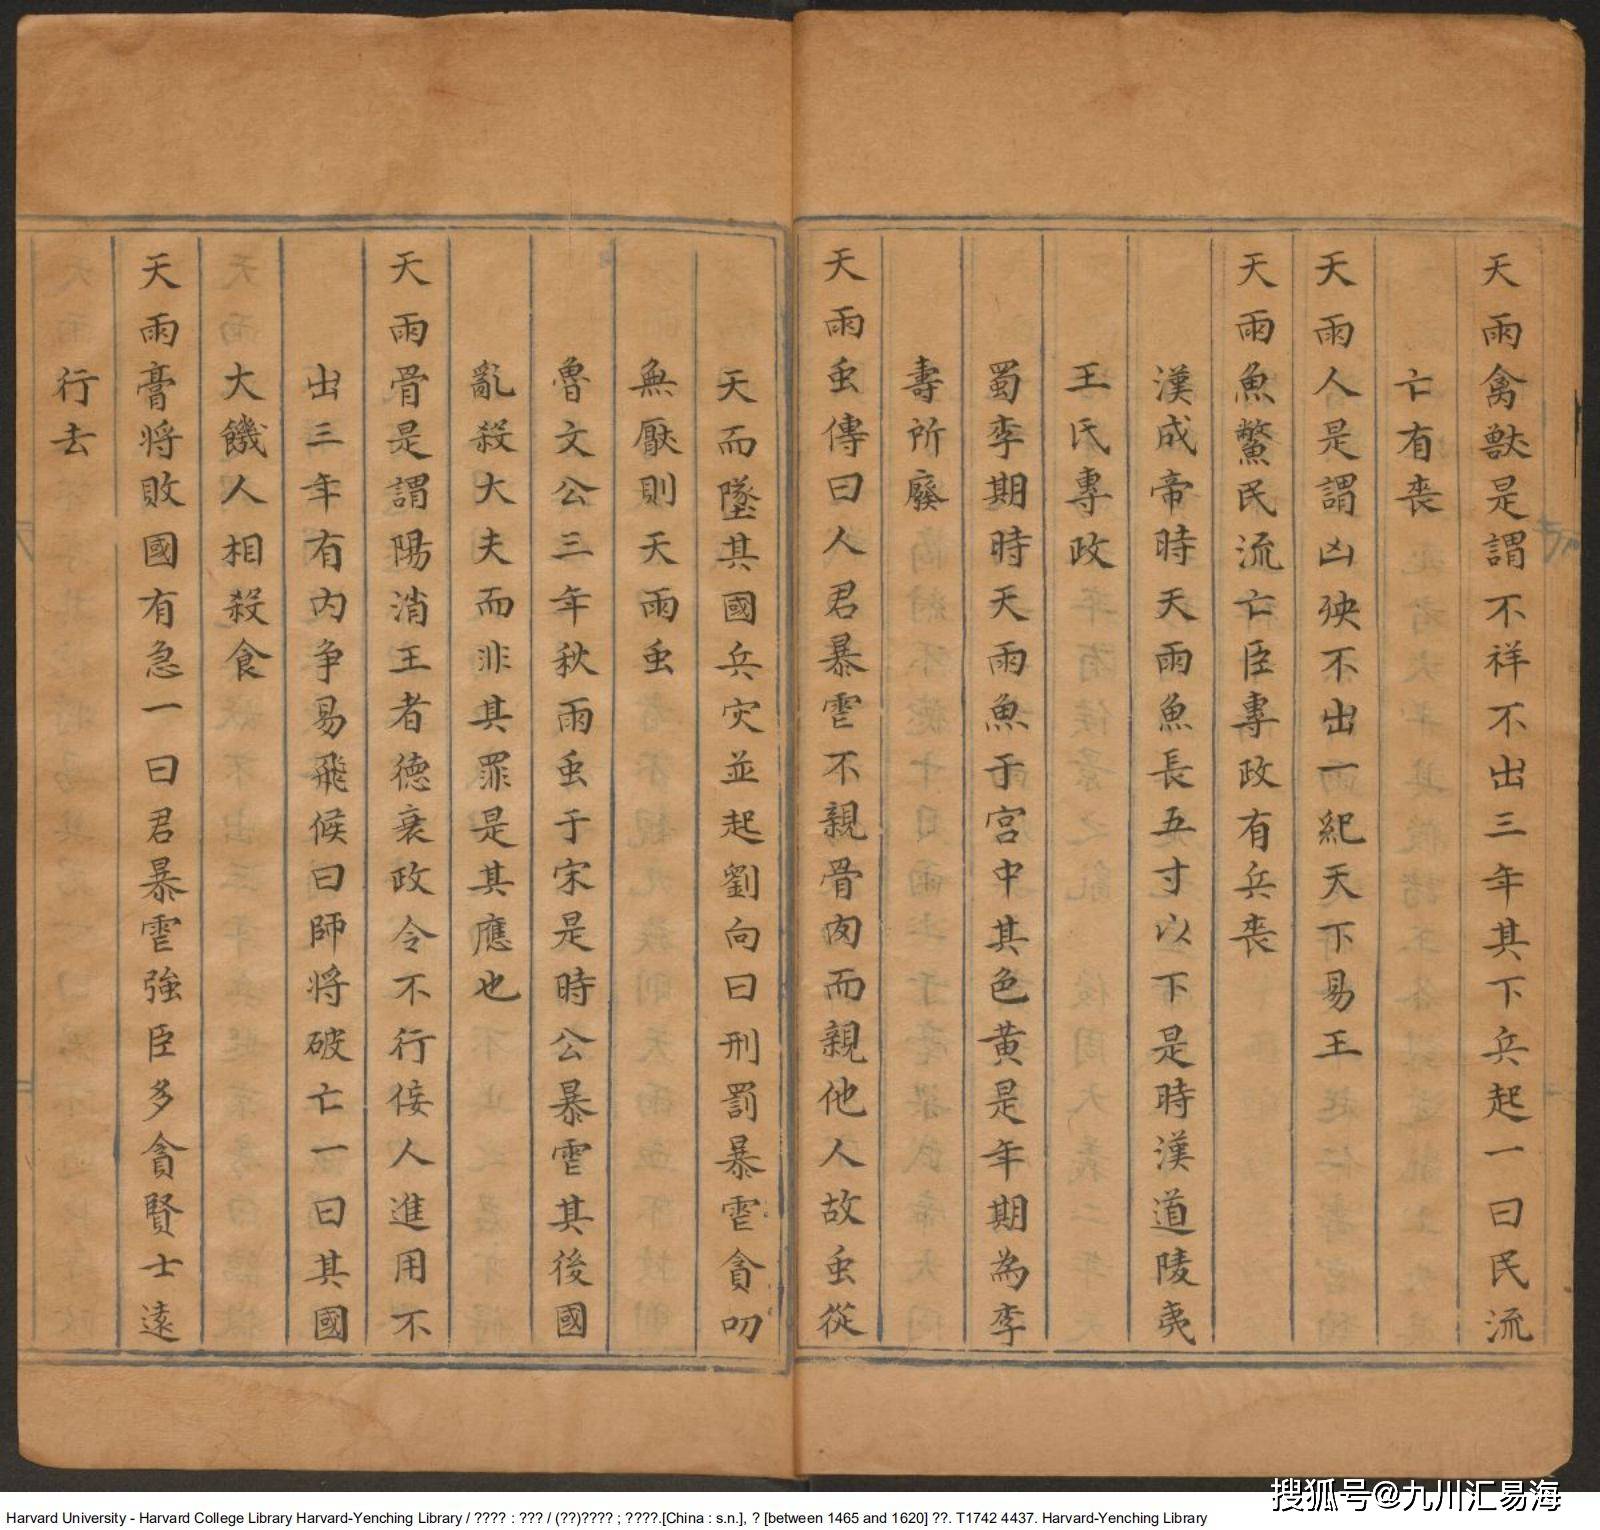 天雨禽獸是謂不祥不出三年其下兵起一曰民流
亡有丧
天雨人是謂凶殃不出一紀天下易王
天雨魚鱉民流亡臣專政有兵丧
漢成帝時天雨魚長五寸以下是時漢道陵夷
王氏專政
蜀李期時天雨魚于宮中其色黄是年期為李
壽所廢
天雨虫傳曰人君暴虐不親骨肉而親他人故虫從
天而墜其國兵灾並起劉向曰刑罰暴虐貪叨
無厭則天雨虫
魯文公三年秋雨虫于宋是時公暴虐其後國
亂殺大夫而非其罪是其應也
天雨骨是謂陽消王者德衰政令不行佞人進用不
出三年有内争易飛候曰師将破亡一曰其國
大饑人相殺食
天雨膏将敗國有急一曰君暴虐強臣多貪賢士遠
行去
搜狐号@九川汇易海
Harvard University - Harvard College Library Harvard-Yenching Library / ???? : ??? / (??)???? ; ????.[China : s.n.], ? [between 1465 and 1620] ??. T1742 4437. Harvard-Yenching Library